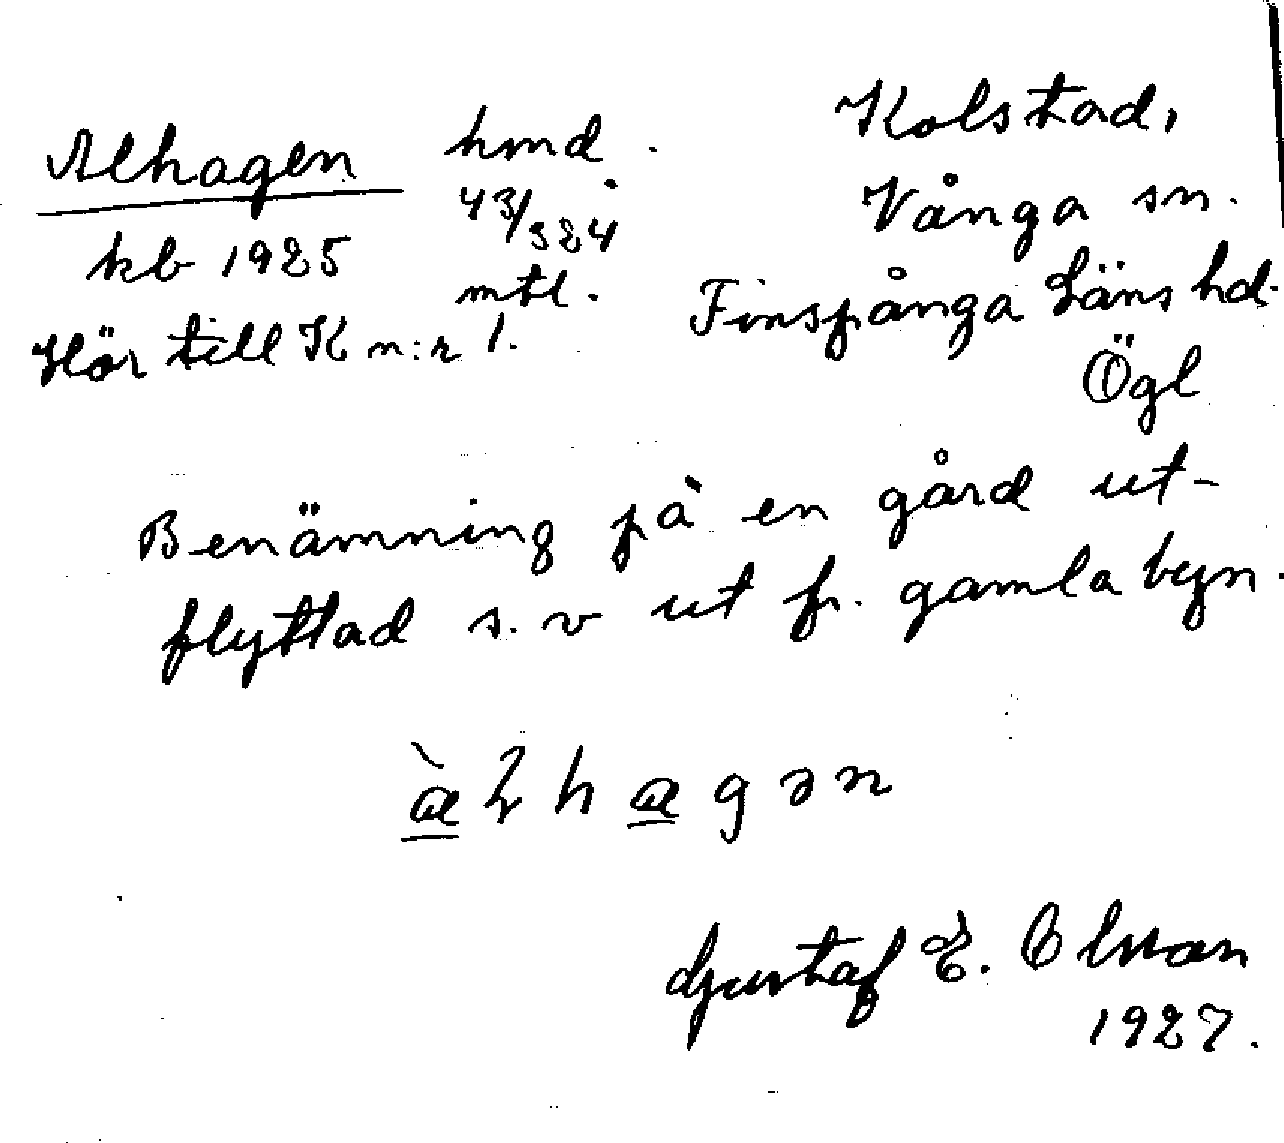 Alhagen hmd.
kb 1925 43/324
mtl.
Hör till K n:r 1.
Kolstad,
Vånga sn.
Finspånga Läns hd.
Ögl
Benämning på en gård ut-
flyttad s.v ut fr. gamla byn.
àlhagən
Gustaf E. Olsson
1927.